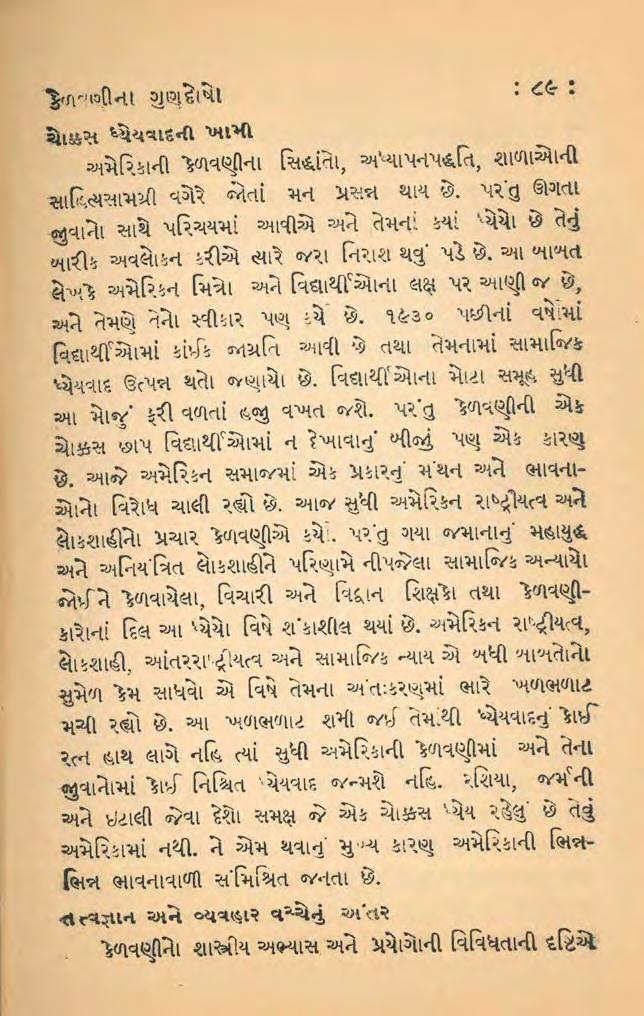 કેળવણીના ગુણદોષો : ૮૯ :
ચોક્કસ ધ્યેયવાદની ખામી
અમેરિકાની કેળવણીના સિદ્ધાંતો, અધ્યાપનપદ્ધતિ, શાળાઓની
સાહિત્યસામગ્રી વગેરે જોતાં મન પ્રસન્ન થાય છે. પરંતુ ઊગતા
જુવાનો સાથે પરિચયમાં આવીએ અને તેમનાં કયાં ધ્યેયો છે તેનું
બારીક અવલોકન કરીએ ત્યારે જરા નિરાશ થવું પડે છે. આ બાબત
લેખકે અમેરિકન મિત્રો અને વિદ્યાર્થીઓના લક્ષ પર આણી જ છે,
અને તેમણે તેનો સ્વીકાર પણ કર્યો છે. ૧૯૩૦ પછીનાં વર્ષોમાં
વિદ્યાર્થીઓમાં કાંઈક જાગ્રતિ આવી છે તથા તેમનામાં સામાજિક
ધ્યેયવાદ ઉત્પન્ન થતો જણાયો છે. વિદ્યાર્થીઓના મોટા સમૂહ સુધી
આ મોજું ફરી વળતાં હજી વખત જશે. પરંતુ કેળવણીની એક
ચોક્કસ છાપ વિદ્યાર્થીઓમાં ન દેખાવાનું બીજું પણ એક કારણ
છે. આજે અમેરિકન સમાજમાં એક પ્રકારનું મંથન અને ભાવના-
ઓનો વિરોધ ચાલી રહ્યો છે. આજ સુધી અમેરિકન રાષ્ટ્રીયત્વ અને
લોકશાહીનો પ્રચાર કેળવણીએ કર્યો. પરંતુ ગયા જમાનાનું મહાયુદ્ધ
અને અનિયંત્રિત લોકશાહીને પરિણામે નીપજેલા સામાજિક અન્યાયો
જોઈને કેળવાયેલા, વિચારી અને વિદ્વાન શિક્ષકો તથા કેળવણી-
કારોનાં દિલ આ ધ્યેયો વિષે શંકાશીલ થયાં છે. અમેરિકન રાષ્ટ્રીયત્વ,
લોકશાહી, આંતરરાષ્ટ્રીયત્વ અને સામાજિક ન્યાય એ બધી બાબતોનો
સુમેળ કેમ સાધવો એ વિષે તેમના અંતઃકરણમાં ભારે ખળભળાટ
મચી રહ્યો છે. આ ખળભળાટ શમી જઈ તેમાંથી ધ્યેયવાદનું કોઈ
રત્ન હાથ લાગે નહિ ત્યાં સુધી અમેરિકાની કેળવણીમાં અને તેના
જુવાનોમાં કોઈ નિશ્ચિત ધ્યેયવાદ જન્મશે નહિ. રશિયા, જર્મની
અને ઇટાલી જેવા દેશો સમક્ષ જે એક ચોક્કસ ધ્યેય રહેલું છે તેવું
અમેરિકામાં નથી. ને એમ થવાનું મુખ્ય કારણ અમેરિકાની ભિન્ન-
ભિન્ન ભાવનાવાળી સંમિશ્રિત જનતા છે.
તત્વજ્ઞાન અને વ્યવહાર વચ્ચેનું અંતર
કેળવણીનો શાસ્ત્રીય અભ્યાસ અને પ્રયોગોની વિવિધતાની દૃષ્ટિએ